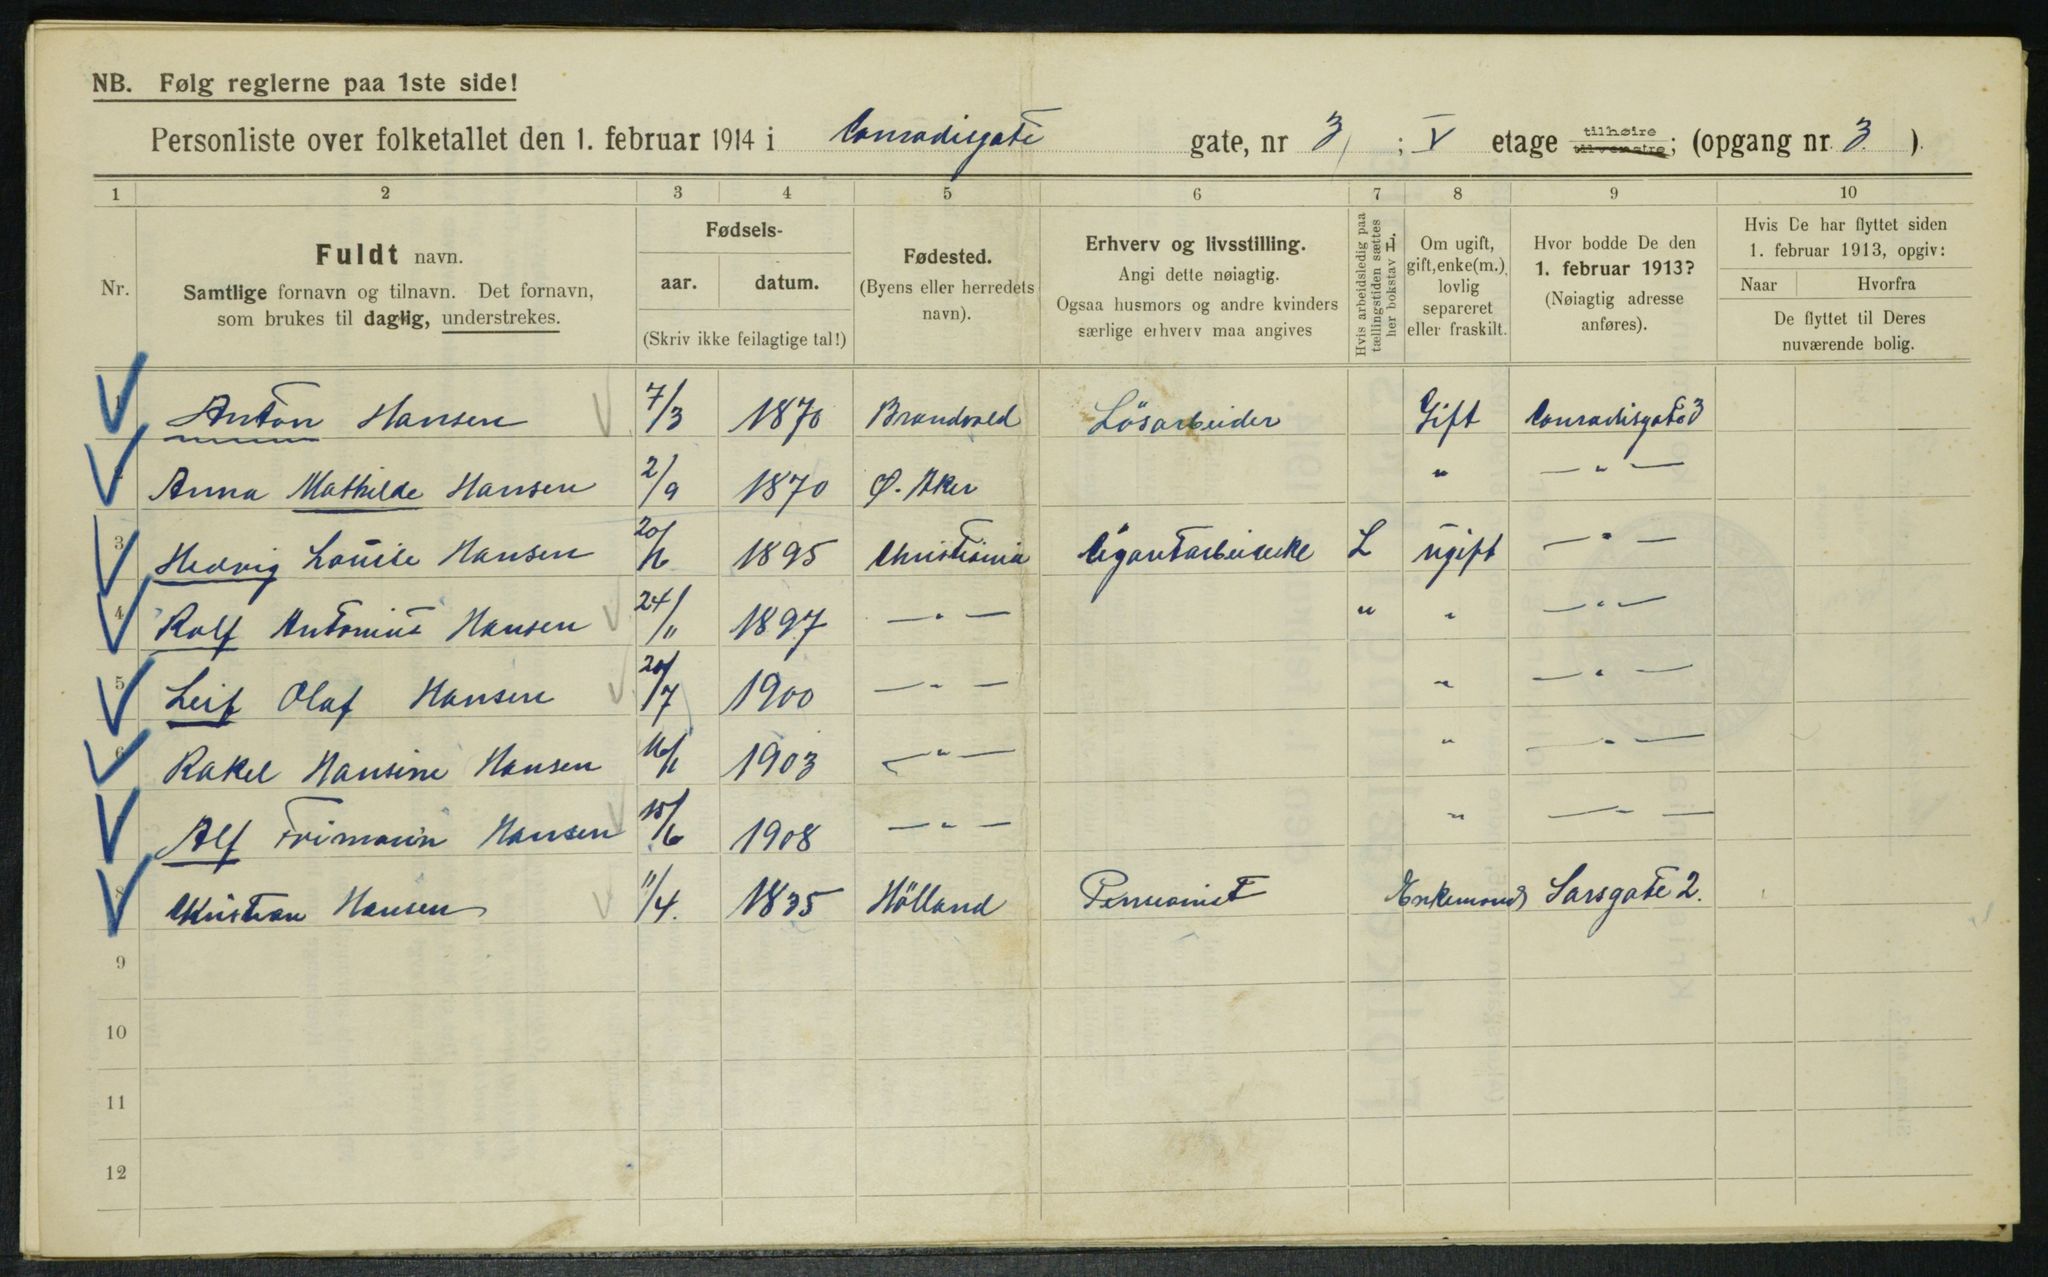 NB. Følg reglerne paa 1ste side!
Personliste over folketallet den 1. februar 1914 i Conradisgate gate, nr 3 ; V etage tilhøire tilvenstre; (opgang nr. 3 ).
1 2 3 4 5 6 7 8 9 10
Nr.
Fuldt navn.
Samtlige fornavn og tilnavn. Det fornavn,
som brukes til daglig, understrekes.
Fødsels-
aar. datum.
(Skriv ikke feilagtige tal!)
Fødested.
(Byens eller herredets
navn).
Erhverv og livsstilling.
Angi dette nøiagtig.
Ogsaa husmors og andre kvinders
særlige erhverv maa angives
Hvis arbeidsledig paa
tællingstiden sættes
her bokstav L.
Om ugift,
gift, enke(m.),
lovlig
separeret
eller fraskilt.
Hvor bodde De den
1. februar 1913?
(Nøiagtig adresse
anføres).
Hvis De har flyttet siden
1. februar 1913, opgiv:
Naar Hvorfra
De flyttet til Deres
nuværende bolig.
1 Anton Hansen 7/3 1870 Brandvold Lösarbeider Gift Conradisgate 3
2 Anna Mathilde Hansen 2/9 1870 Ø. Aker " — " —
3 Hedvig Louise Hansen 20/ 1895 Christiania L ugift — " —
4 Rolf Antonius Hansen 24/11 1897 — " — " " — " —
5 Leif Olaf Hansen 20/7 1900 — " — " — " —
6 Rakel Hansine Hansen 1903 — " — " — " —
Alf Frimann Hansen /6 1908 — " — " — " —
8 Kristian Hansen 11/4. 1835 Hölland Pensionist Enkemand Sarsgate 2.
9
10
11
12